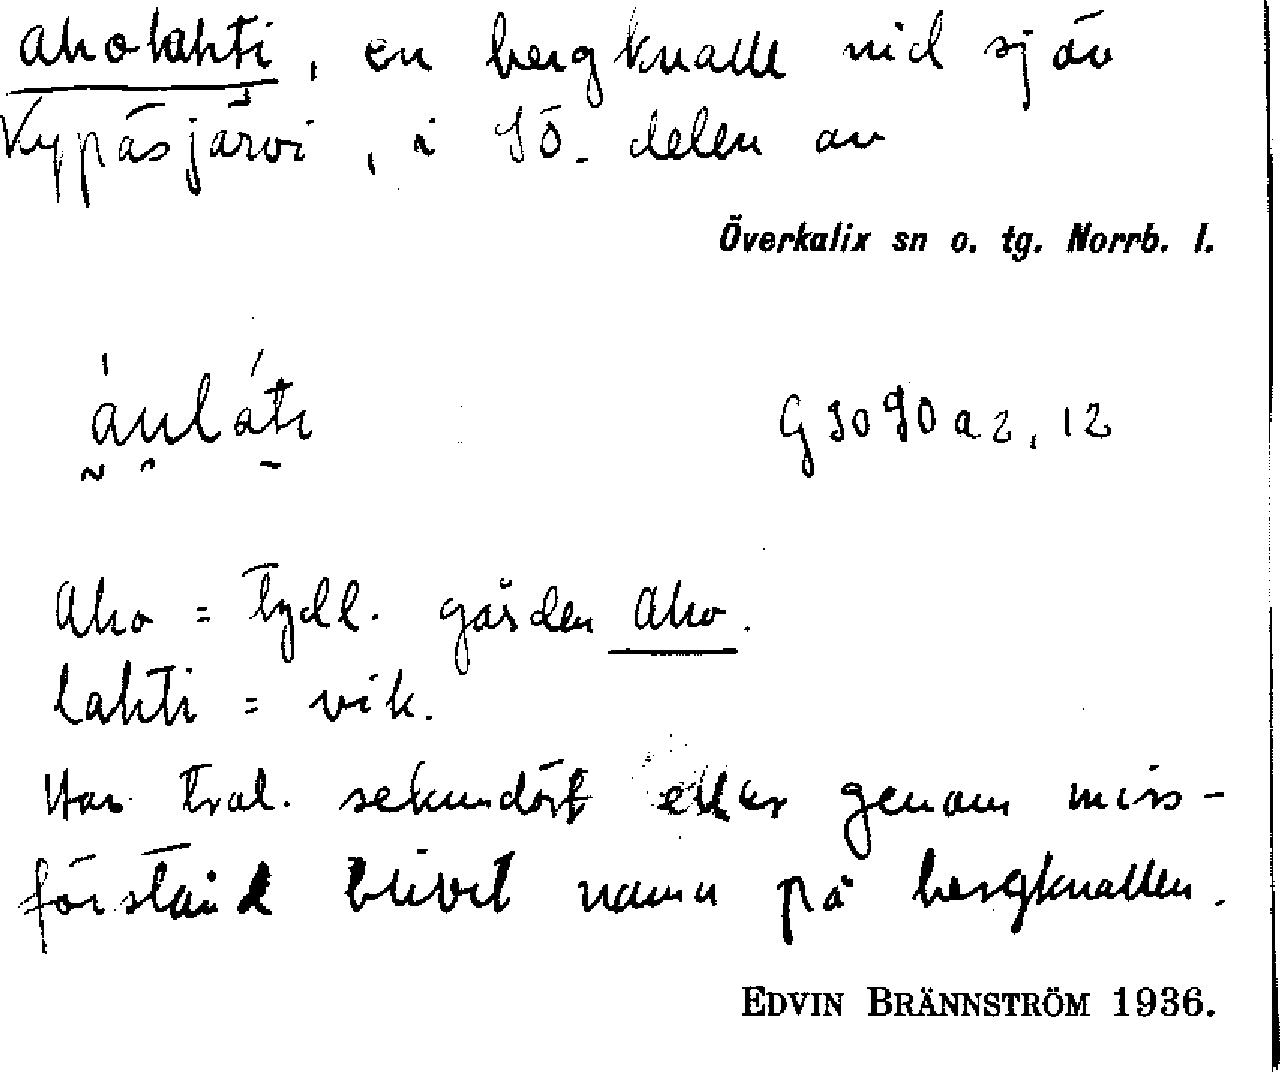 Aholahti, en bergknalle vid sjön
Vypäsjärvi, i SÖ. delen av
Överkalix sn o. tg. Norrb. l.
Aho = tydl. gården Aho.
lahti = vik.
Har trol. sekundärt eller genom miss-
förstånd blivit namn på bergknallen.
EDVIN BRÄNNSTRÖM 1936.